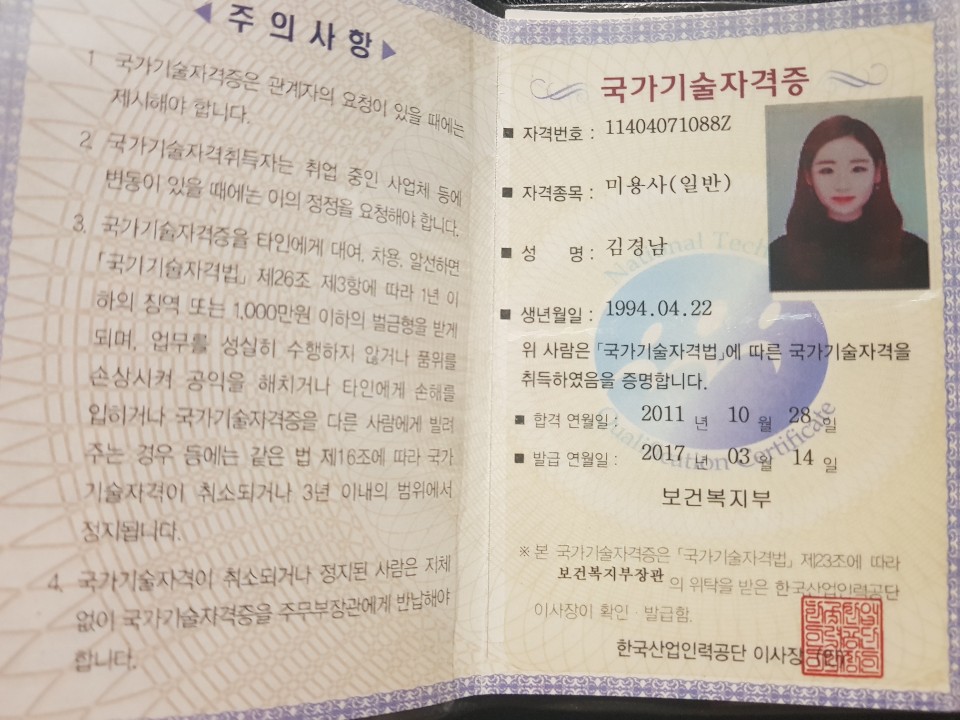 주 의 사 항
1. 국가기술자격증은 관계자의 요청이 있을 때에는
제시해야 합니다.
2. 국가기술자격취득자는 취업 중인 사업체 등에
변동이 있을 때에는 이의 정정을 요청해야 합니다.
3. 국가기술자격증을 타인에게 대여, 차용, 알선하면
「국가기술자격법」 제26조 제3항에 따라 1년 이
하의 징역 또는 1,000만원 이하의 벌금형을 받게
되며, 업무를 성실히 수행하지 않거나 품위를
손상시켜 공익을 해치거나 타인에게 손해를
입히거나 국가기술자격증을 다른 사람에게 빌려
주는 경우 등에는 같은 법 제16조에 따라 국가
기술자격이 취소되거나 3년 이내의 범위에서
정지됩니다.
4. 국가기술자격이 취소되거나 정지된 사람은 지체
없이 국가기술자격증을 주무부장관에게 반납해야
합니다.
국가기술자격증
■ 자격번호 : 11404071088Z
■ 자격종목 : 미용사(일반)
■ 성 명 : 김경남
■ 생년월일 : 1994.04.22
위 사람은 「국가기술자격법」에 따른 국가기술자격을
취득하였음을 증명합니다.
■ 합격 연월일 : 2011 년 10 월 28 일
■ 발급 연월일 : 2017 년 03 월 14 일
보건복지부
※ 본 국가기술자격증은 「국가기술자격법」 제23조에 따라
보건복지부장관 의 위탁을 받은 한국산업인력공단
이사장이 확인·발급함.
한국산업인력공단 이사장
National Tech
Qualification Certificate